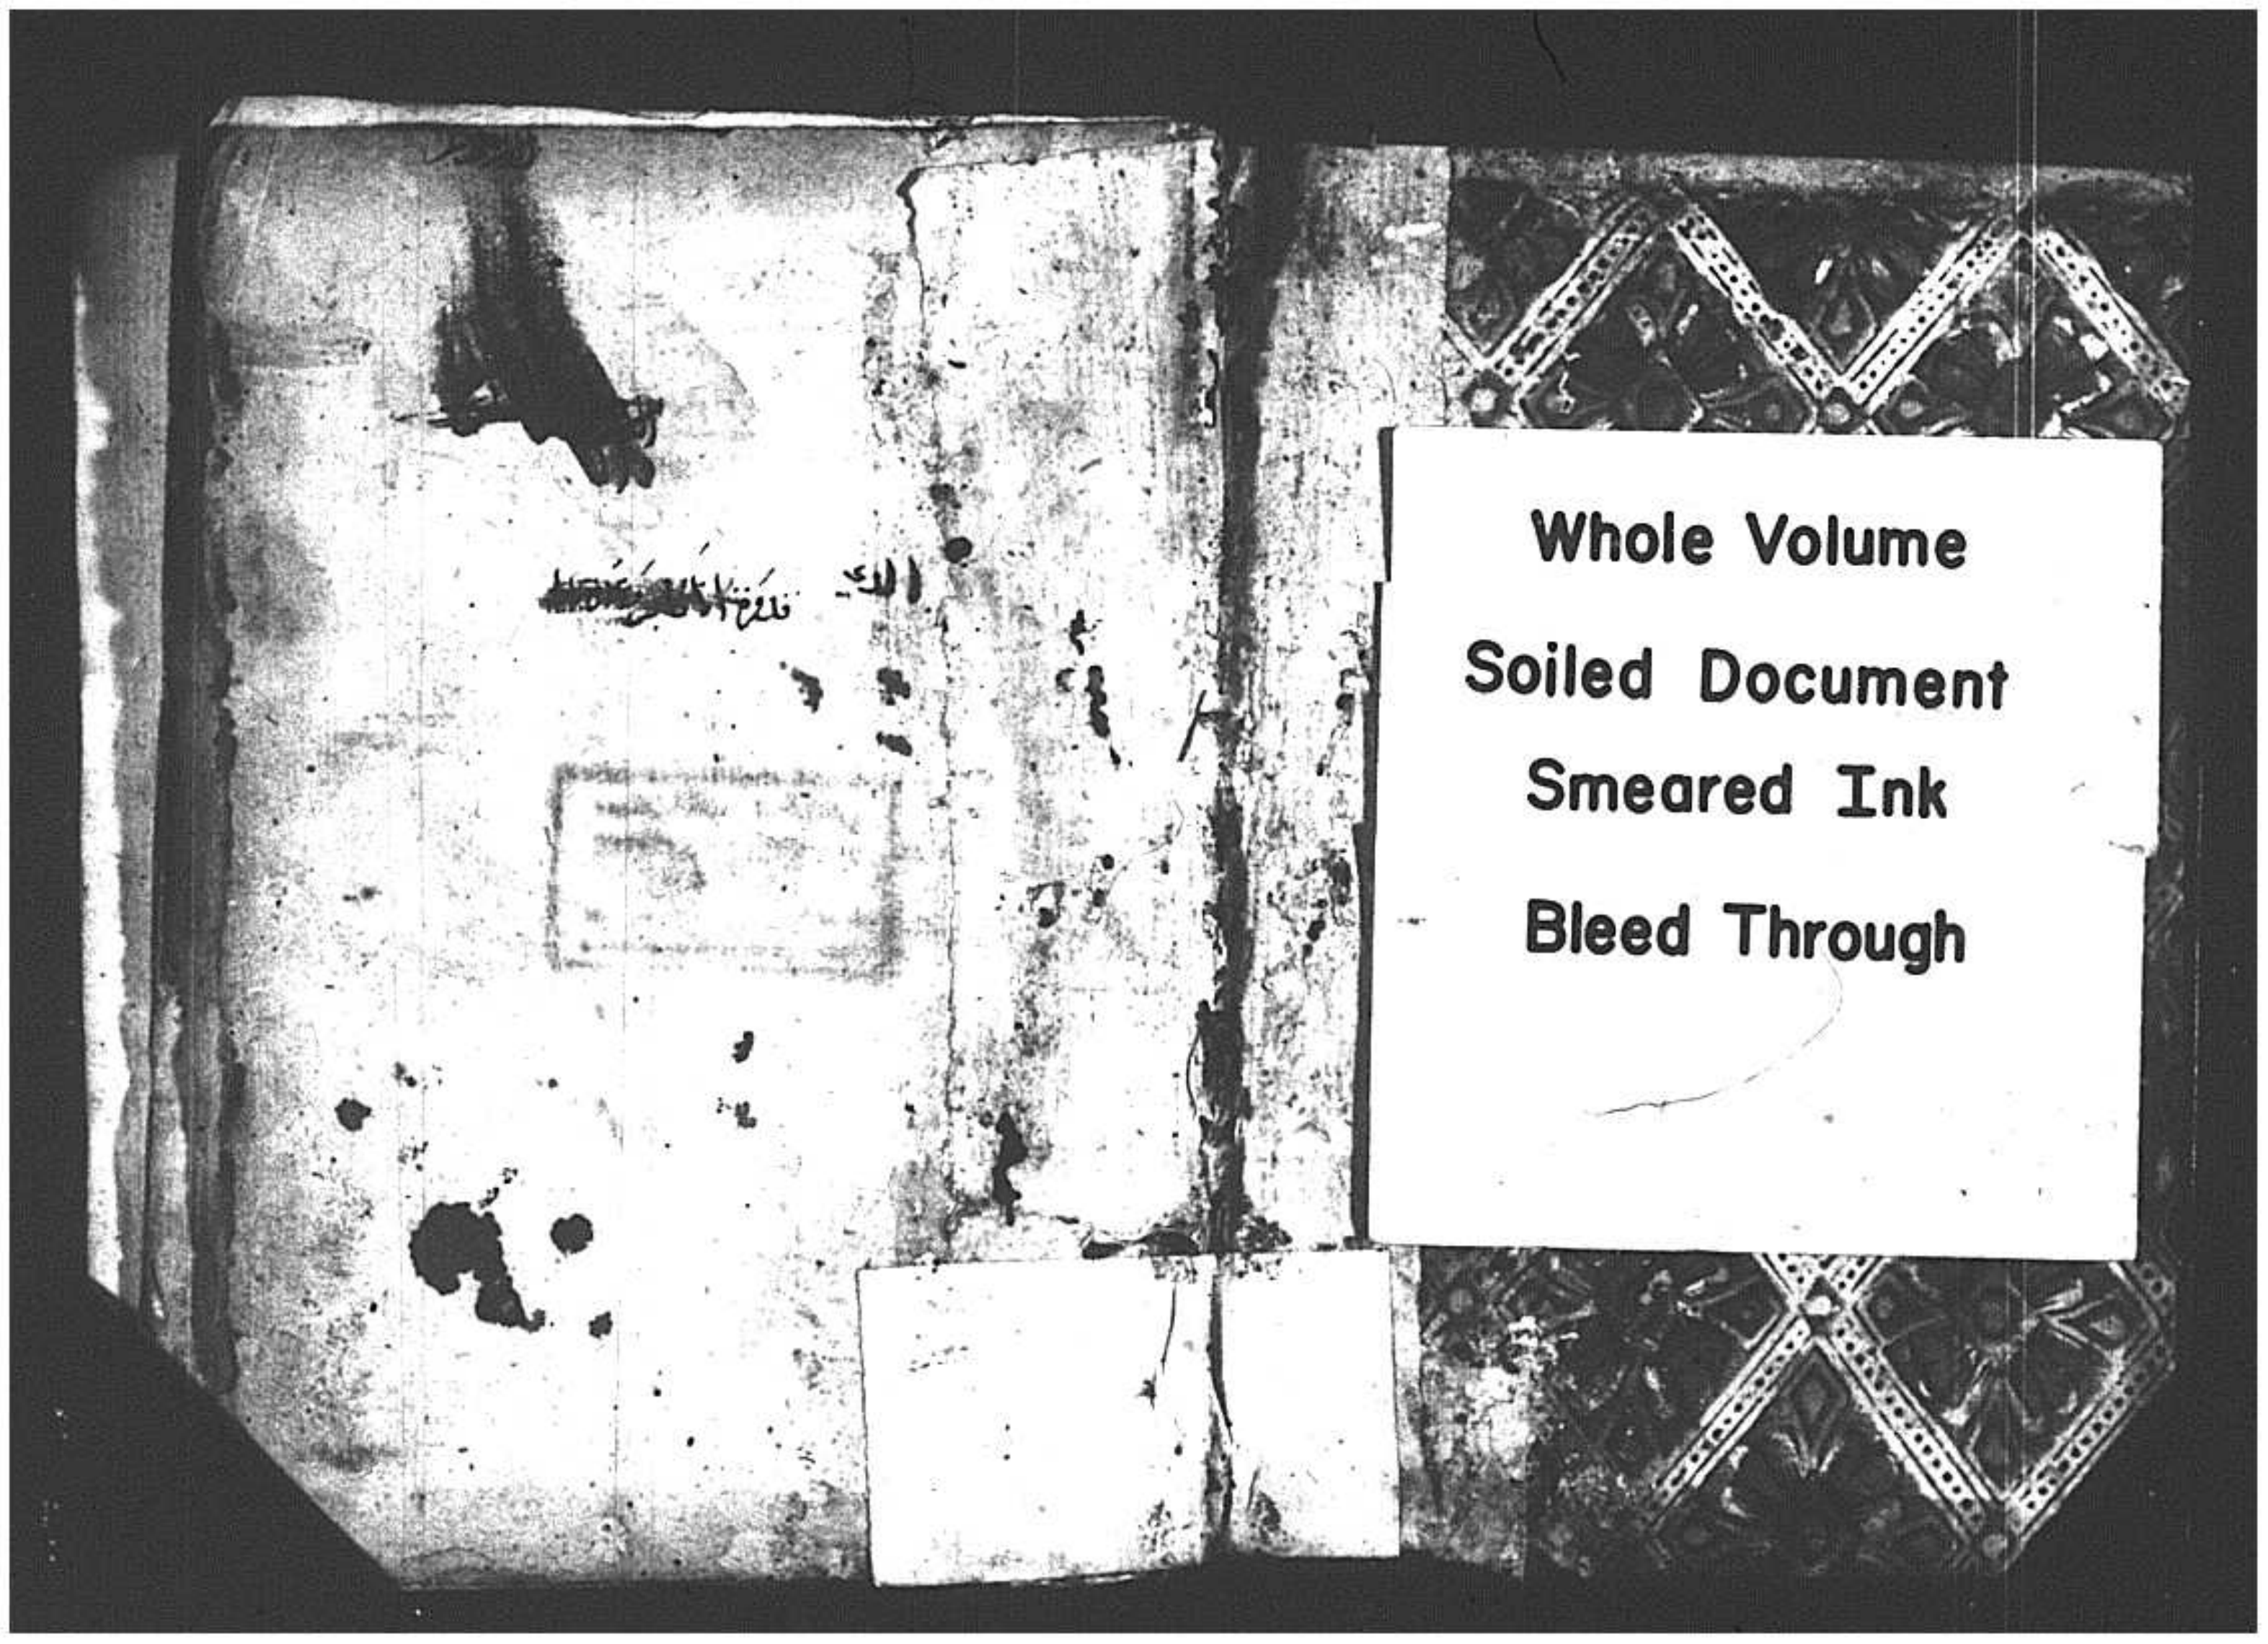 Whole Volume
Soiled Document
Smeared Ink
Bleed Through